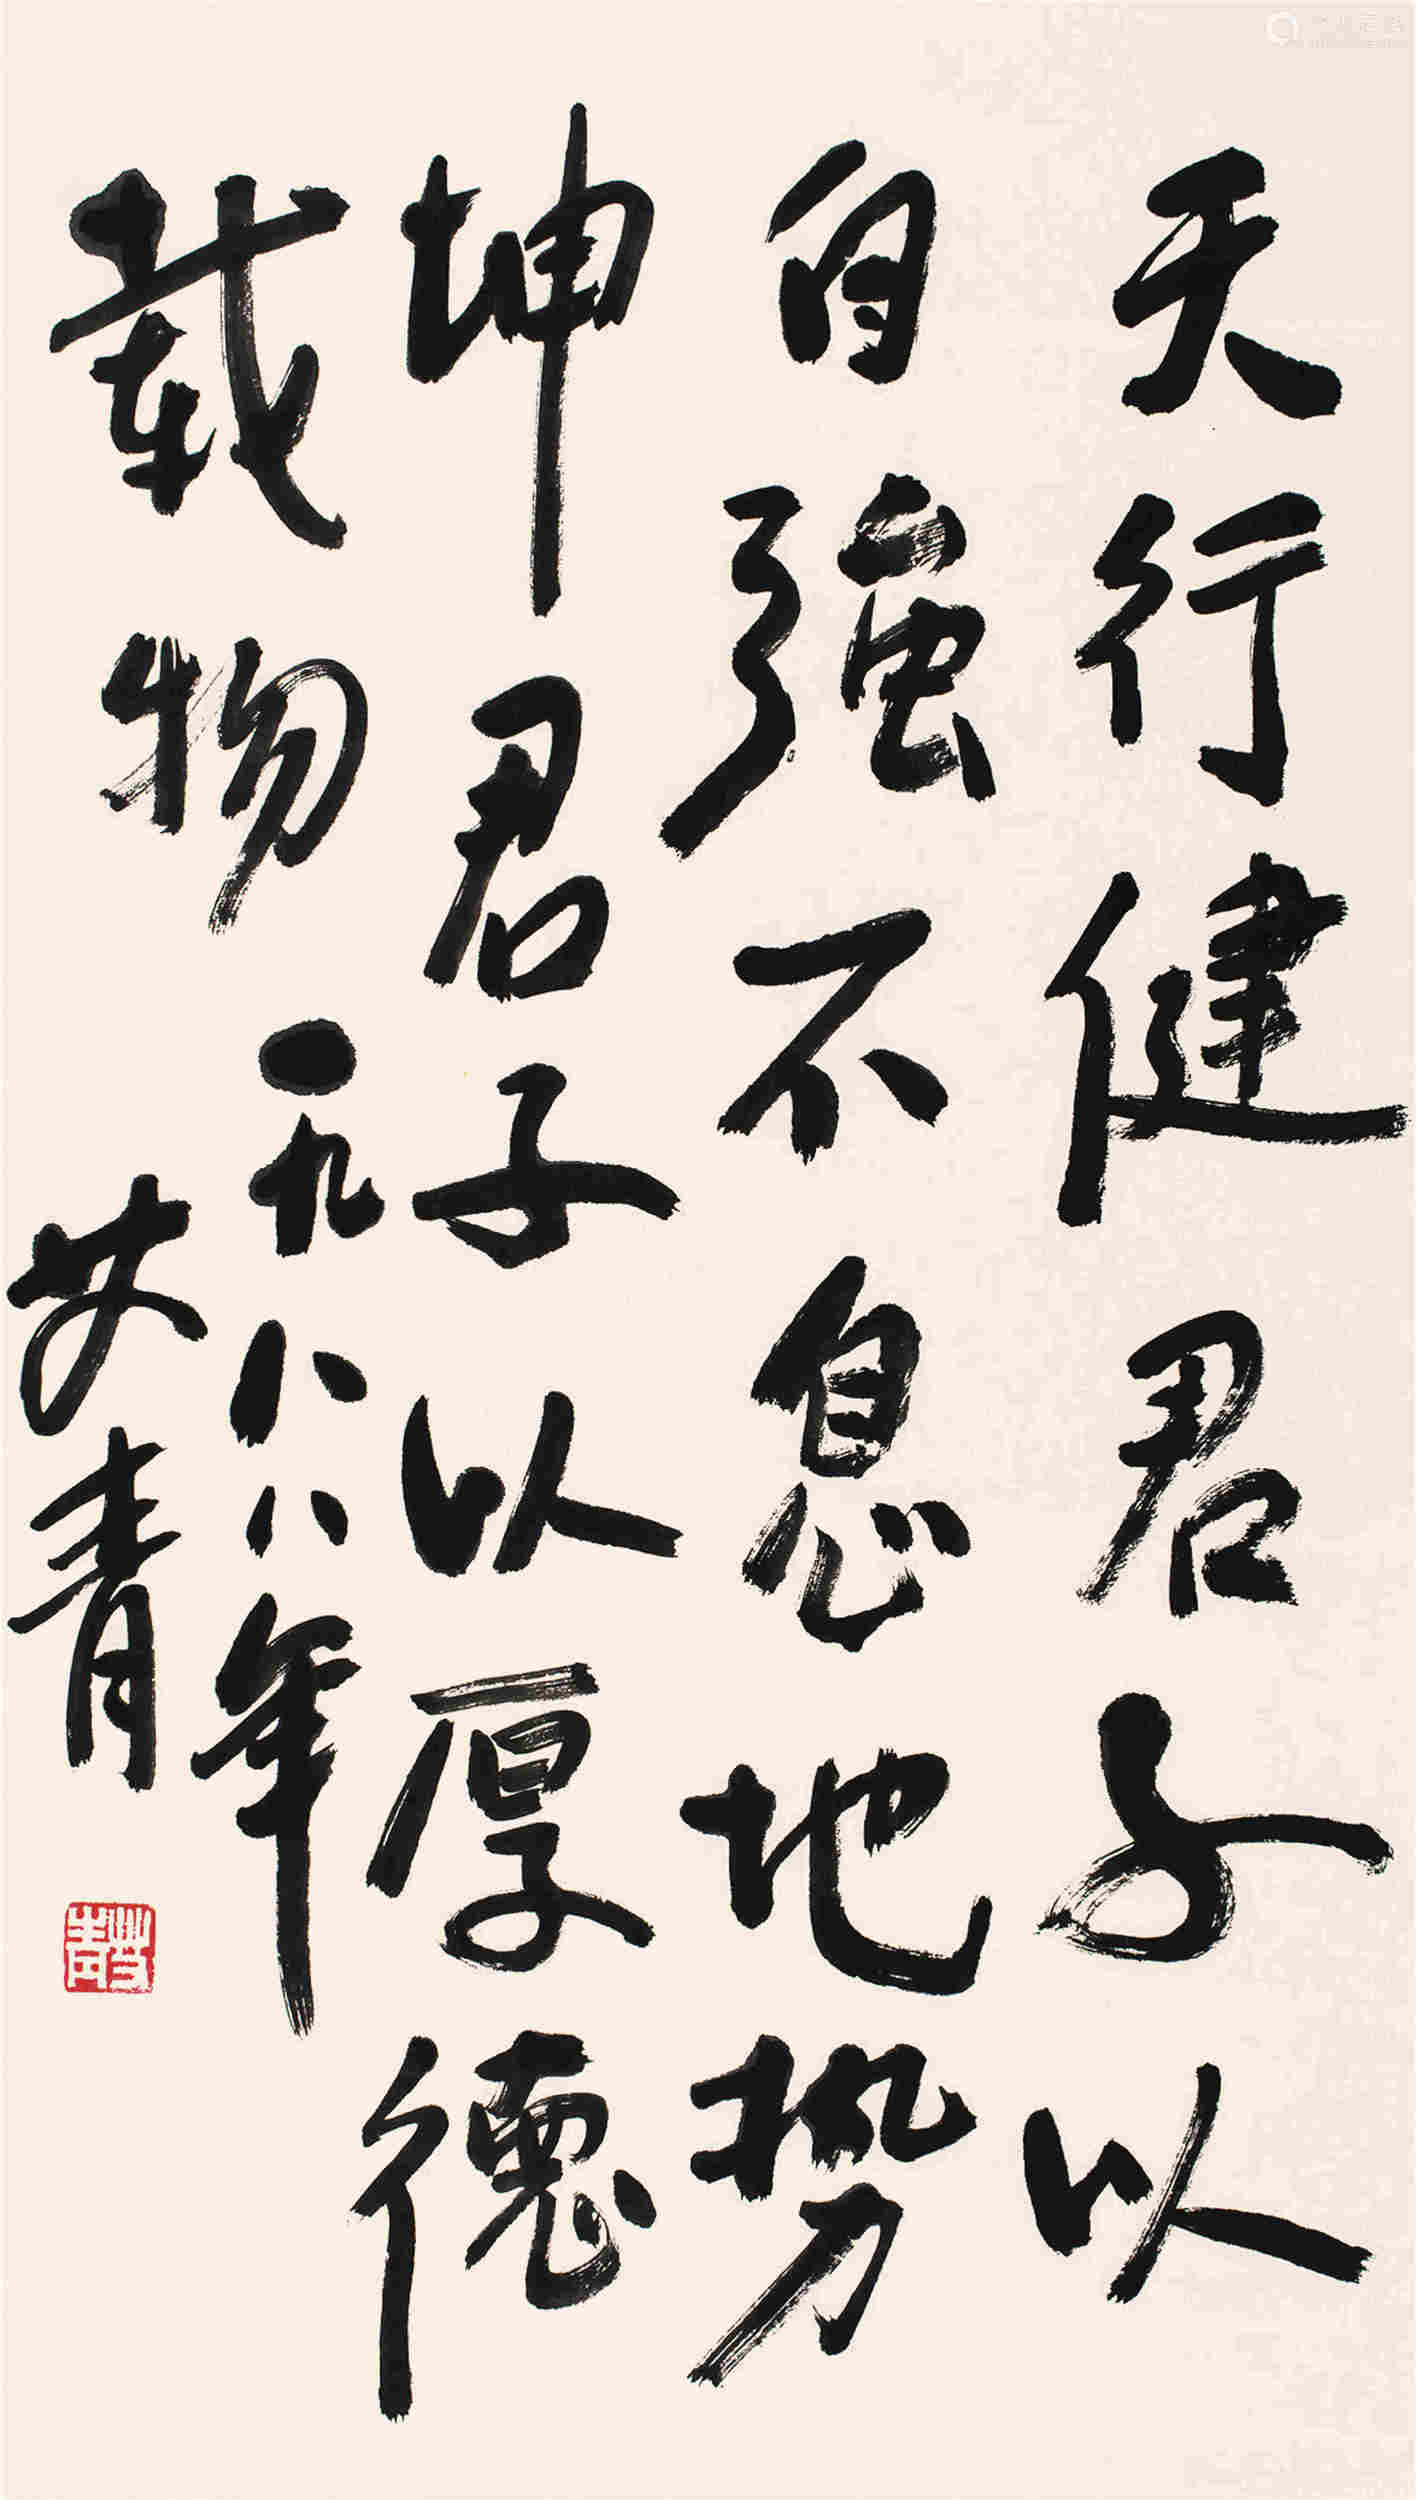 天行健君子以
自强不息地势
坤君子以厚德
载物
一九八八年
艾青
艾青